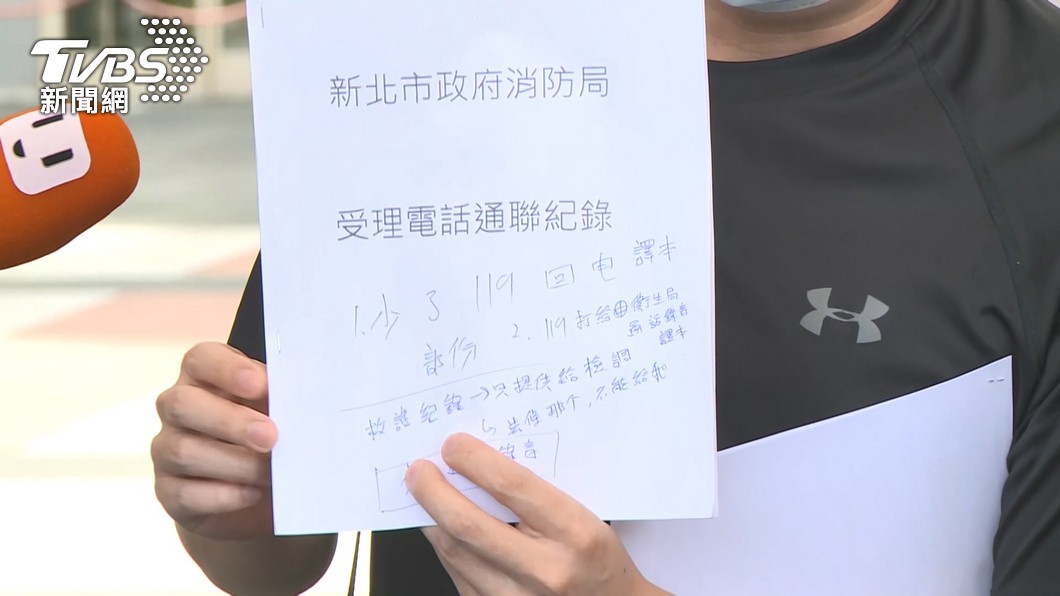 TVBS
新聞網
新北市政府消防局
受理電話通聯紀錄
1.少了 119 回电 譯本
部份 2. 119 打給衛生局
通話錄音
譯本
救護紀錄→只提供給檢調
不能給我
錄音